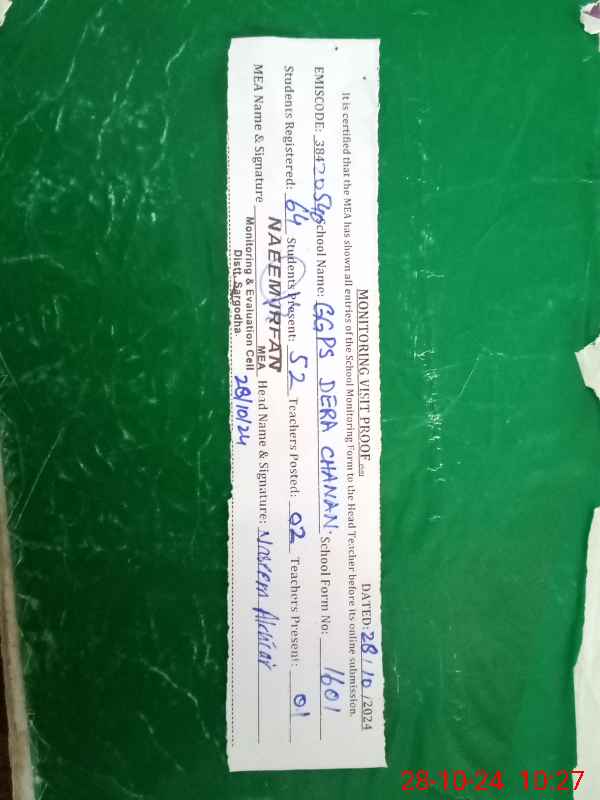 MONITORING VISIT PROOF DATED: 28/10/2024
It is certified that the MEA has shown all entries of the School Monitoring Form to the Head Teacher before its online submission.
EMISCODE: 38420540 School Name: GGPS DERA CHANAN. School Form No: 1601
Students Registered: 64 Students Present: 52 Teachers Posted: 02 Teachers Present: 01
MEA Name & Signature NAEEM IRFAN Head Name & Signature: Nasrem Akhtar
MEA
Monitoring & Evaluation Cell
Distt. Sargodha.
28/10/24
28-10-24 10:27